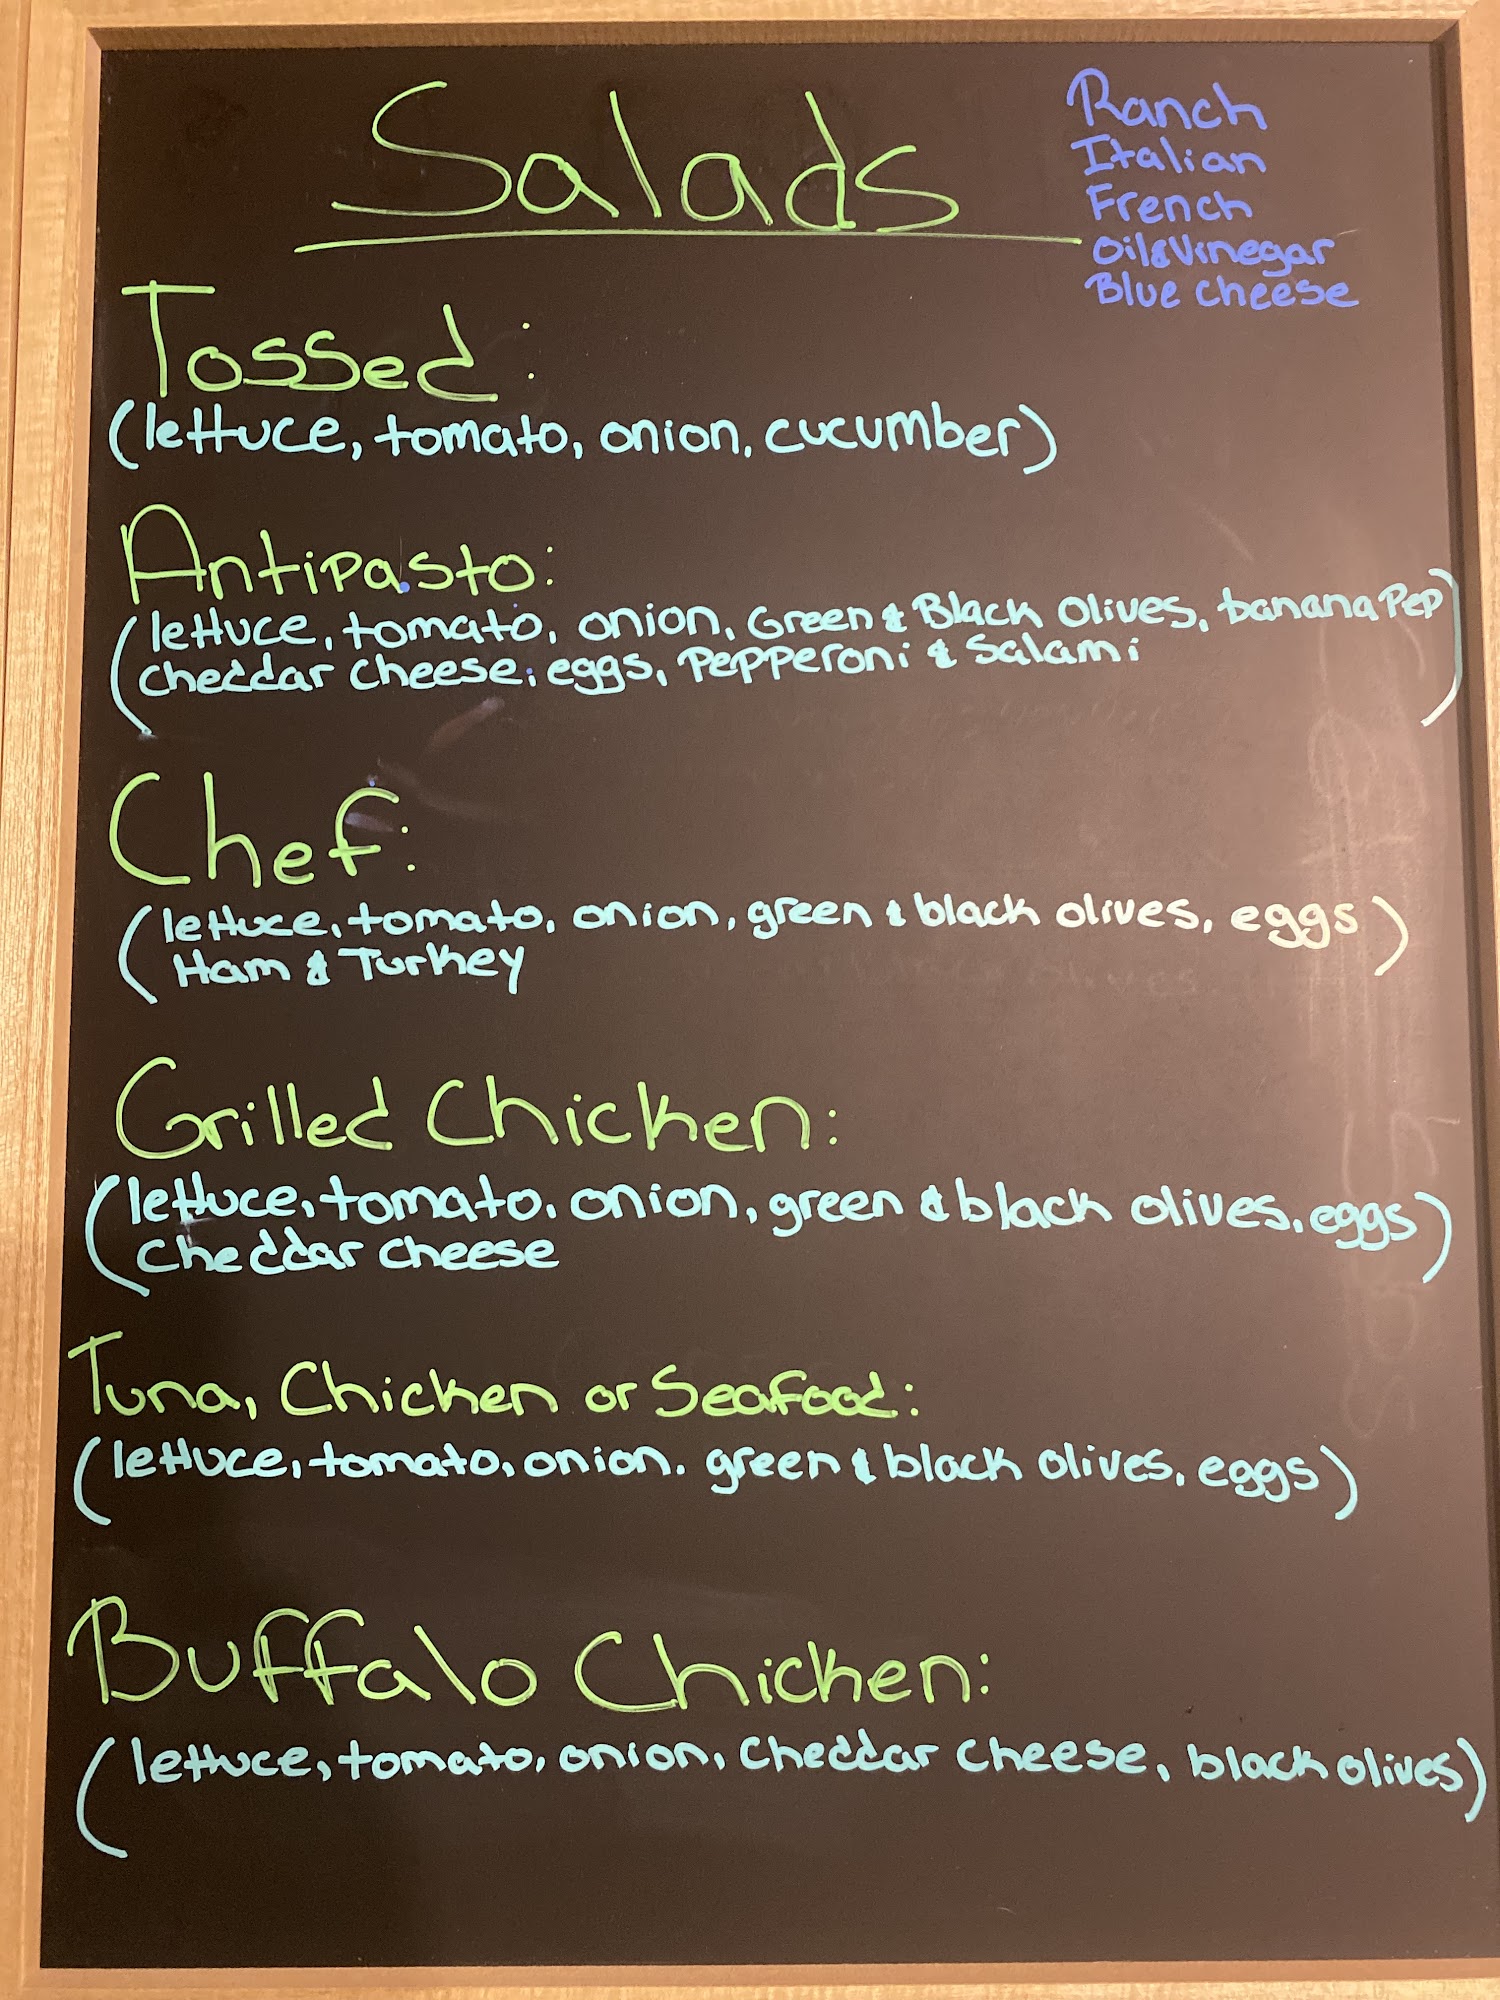 Salads
Ranch
Italian
French
Oil & Vinegar
Blue cheese
Tossed:
(lettuce, tomato, onion, cucumber)
Antipasto:
(lettuce, tomato, onion, Green & Black Olives, banana Pep
cheddar cheese, eggs, Pepperoni & Salami)
Chef:
(lettuce, tomato, onion, green & black olives, eggs
Ham & Turkey)
Grilled Chicken:
(lettuce, tomato, onion, green & black olives, eggs
cheddar cheese)
Tuna, Chicken or Seafood:
(lettuce, tomato, onion. green & black olives, eggs)
Buffalo Chicken:
(lettuce, tomato, onion, cheddar cheese, black olives)